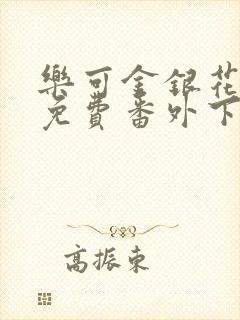 樂可金銀花
免費番外下
高振東